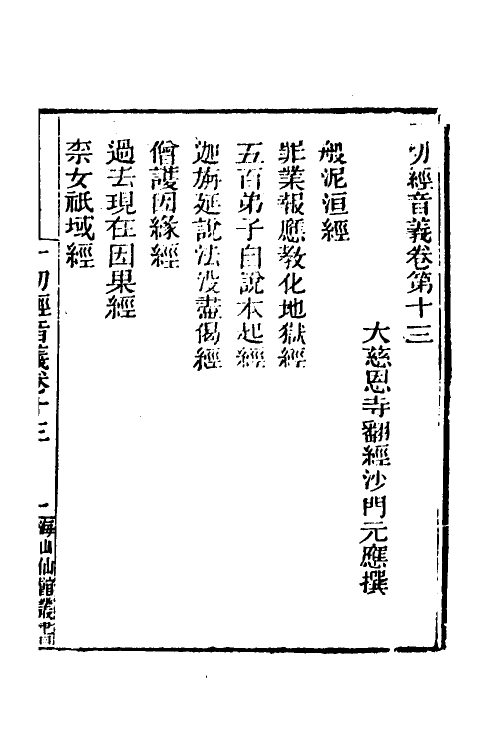 一切經音義卷第十三
大慈恩寺翻經沙門元應撰
般泥洹經
罪業報應教化地獄經
五百弟子自說本起經
迦旃延說法沒盡偈經
僧護因緣經
過去現在因果經
柰女祇域經
一切經音義卷十三
一
海山仙館叢書